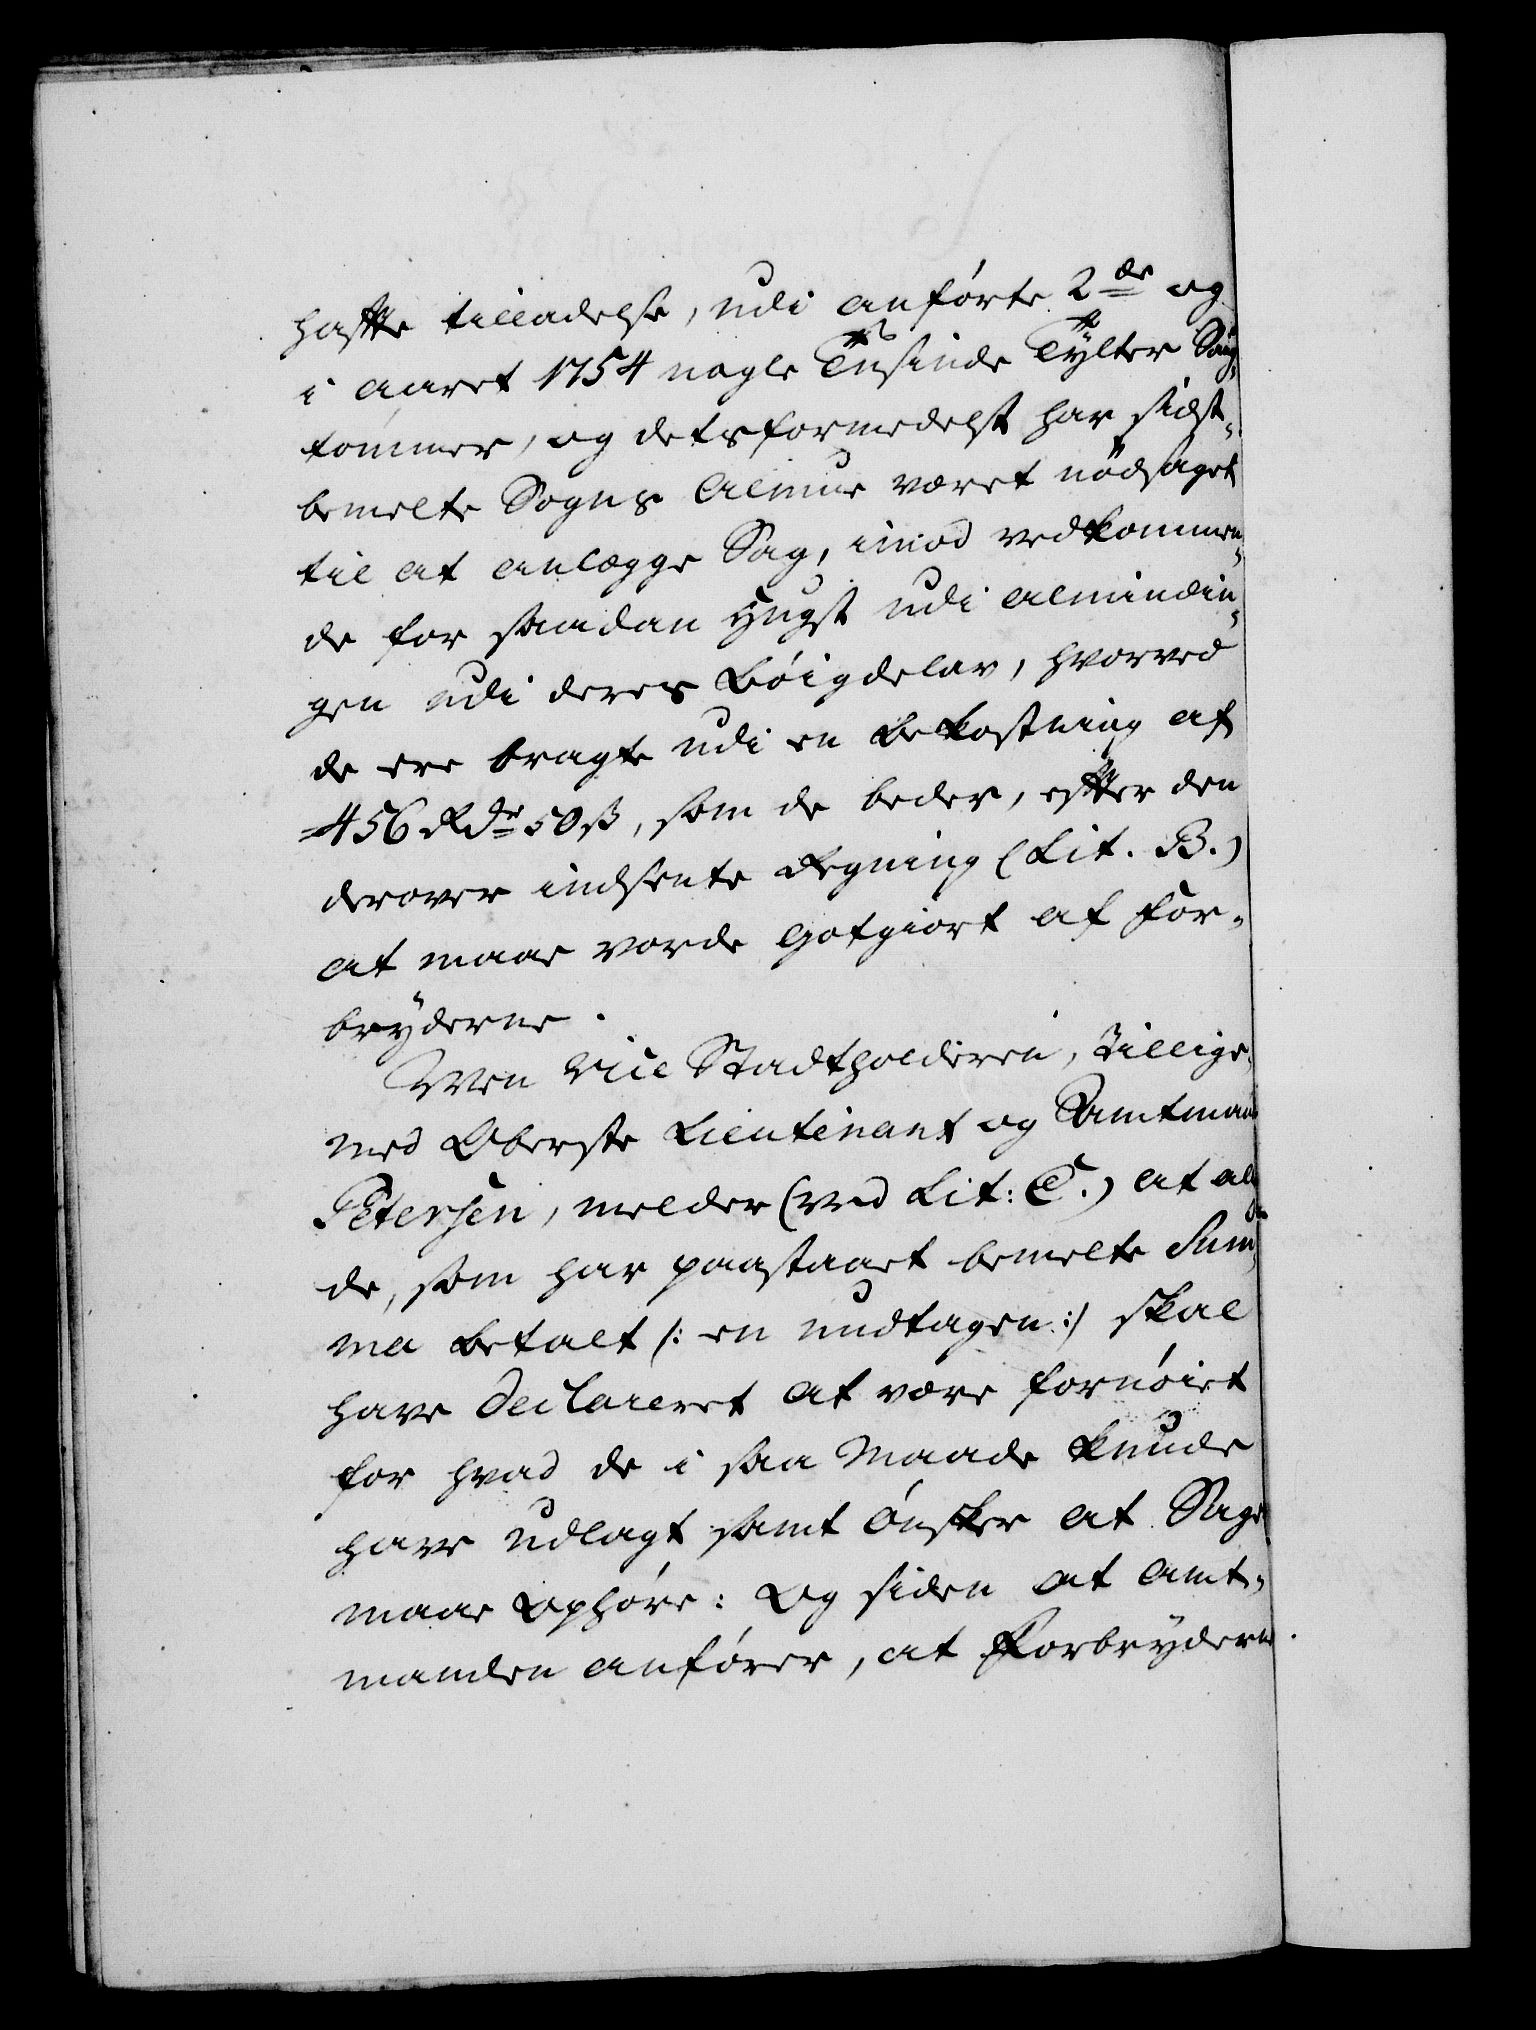 hafte tilladelse, udi anførte 2de og
i aaret 1754 nogle Tusinde Tylter Saug-
tømmer, og detsformedelst har sidst-
bemelte Sogns Almue været nødsaget
til at anlægge Sag, imod vedkommen-
de for saadan Hugst udi Almindin-
gen udi deres Bøigdelav, hvorved
de ere bragte udi en Bekostning af
456 Rdr 50 ß, som de beder, efter den
derover indsente Regning (Lit. B.)
at maae vorde Gotgiort af For-
bryderne.
Men Vice Stadtholderen, Tillige
med Oberste Lieutenant og Amtmand
Petersen, melder (ved Lit: C.) at alle
de, som har paastaaet bemelte Sum-
ma betalt /: en undtagen :/ skal
have Declareret at være fornøiet
for hvad de i saa Maade kunde
have udlagt samt ønsker at Sagen
maae Ophøre: Og siden at Amt-
manden anfører, at Forbryderne